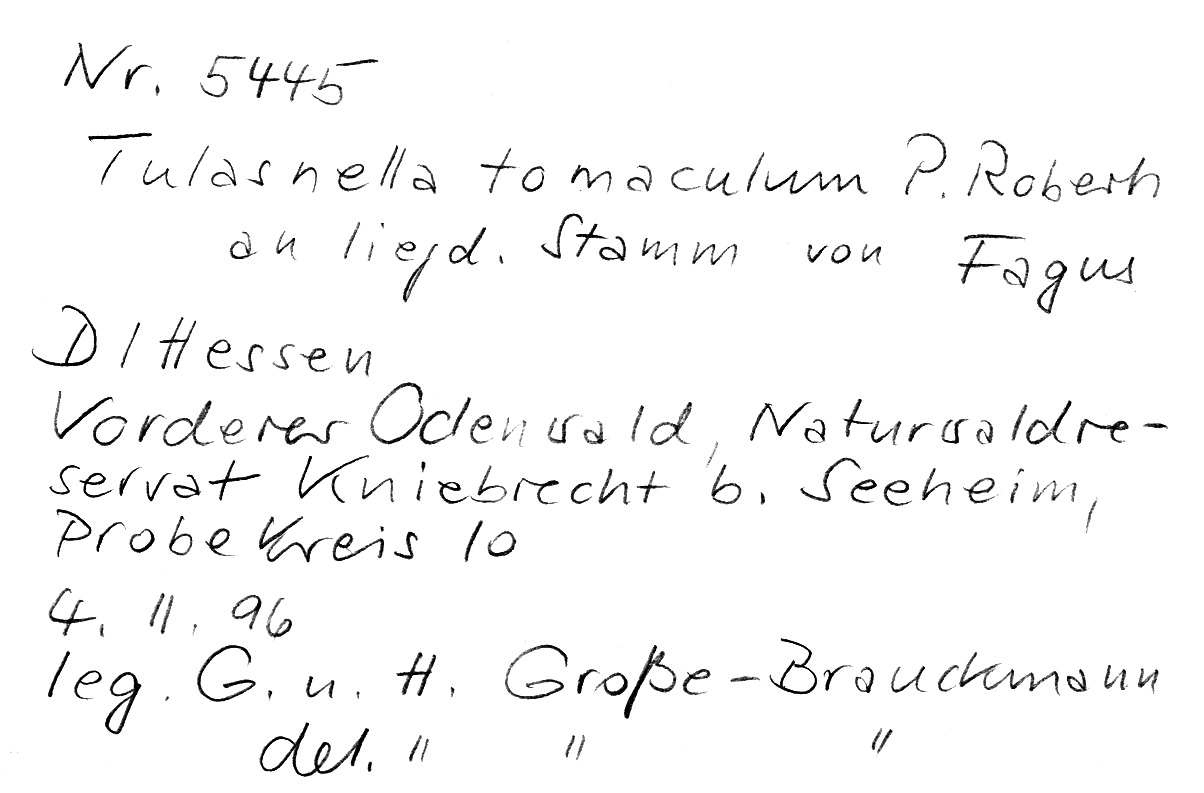 Nr. 5445
Tulasnella tomaculum P. Roberts
an liegd. Stamm von Fagus
D / Hessen
Vorderer Odenwald, Naturwaldre-
servat Kniebrecht b. Seeheim,
Probekreis 10
4. 11. 96
leg. G. u. H. Große-Brauckmann
det. " " "